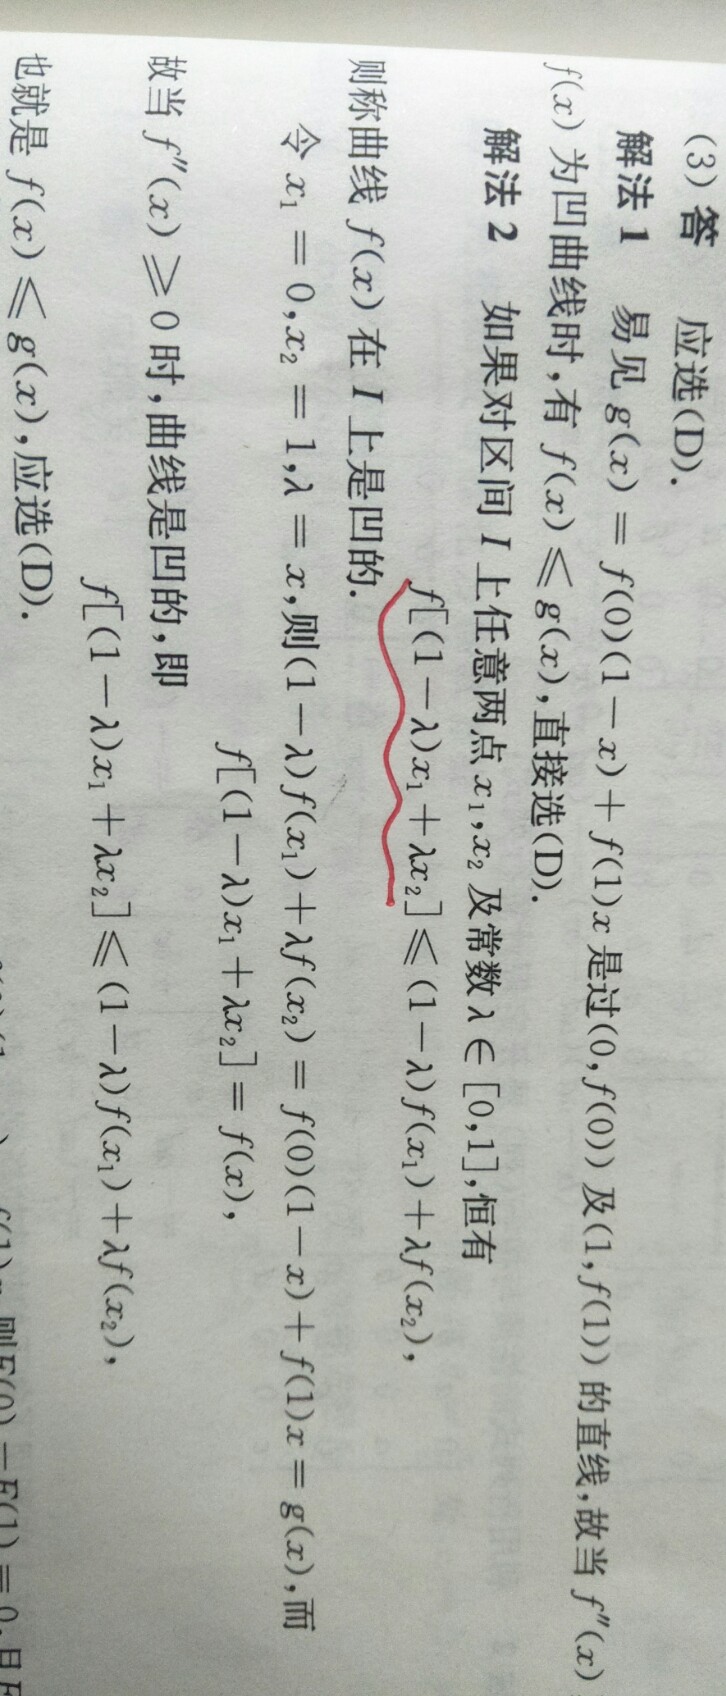 (3) 答 应选(D).
解法 1 易见 g(x) = f(0)(1-x) + f(1)x 是过(0, f(0)) 及(1, f(1)) 的直线,故当 f″(x)
f(x) 为凹曲线时,有 f(x) ≤ g(x),直接选(D).
解法 2 如果对区间 I 上任意两点 x₁, x₂ 及常数 λ ∈ [0,1],恒有
f[(1-λ)x₁ + λx₂] ≤ (1-λ)f(x₁) + λf(x₂),
则称曲线 f(x) 在 I 上是凹的.
令 x₁ = 0, x₂ = 1, λ = x, 则(1-λ)f(x₁) + λf(x₂) = f(0)(1-x) + f(1)x = g(x),而
f[(1-λ)x₁ + λx₂] = f(x),
故当 f″(x) ≥ 0 时,曲线是凹的,即
f[(1-λ)x₁ + λx₂] ≤ (1-λ)f(x₁) + λf(x₂),
也就是 f(x) ≤ g(x),应选(D).
则F(0) = F(1) = 0,且F